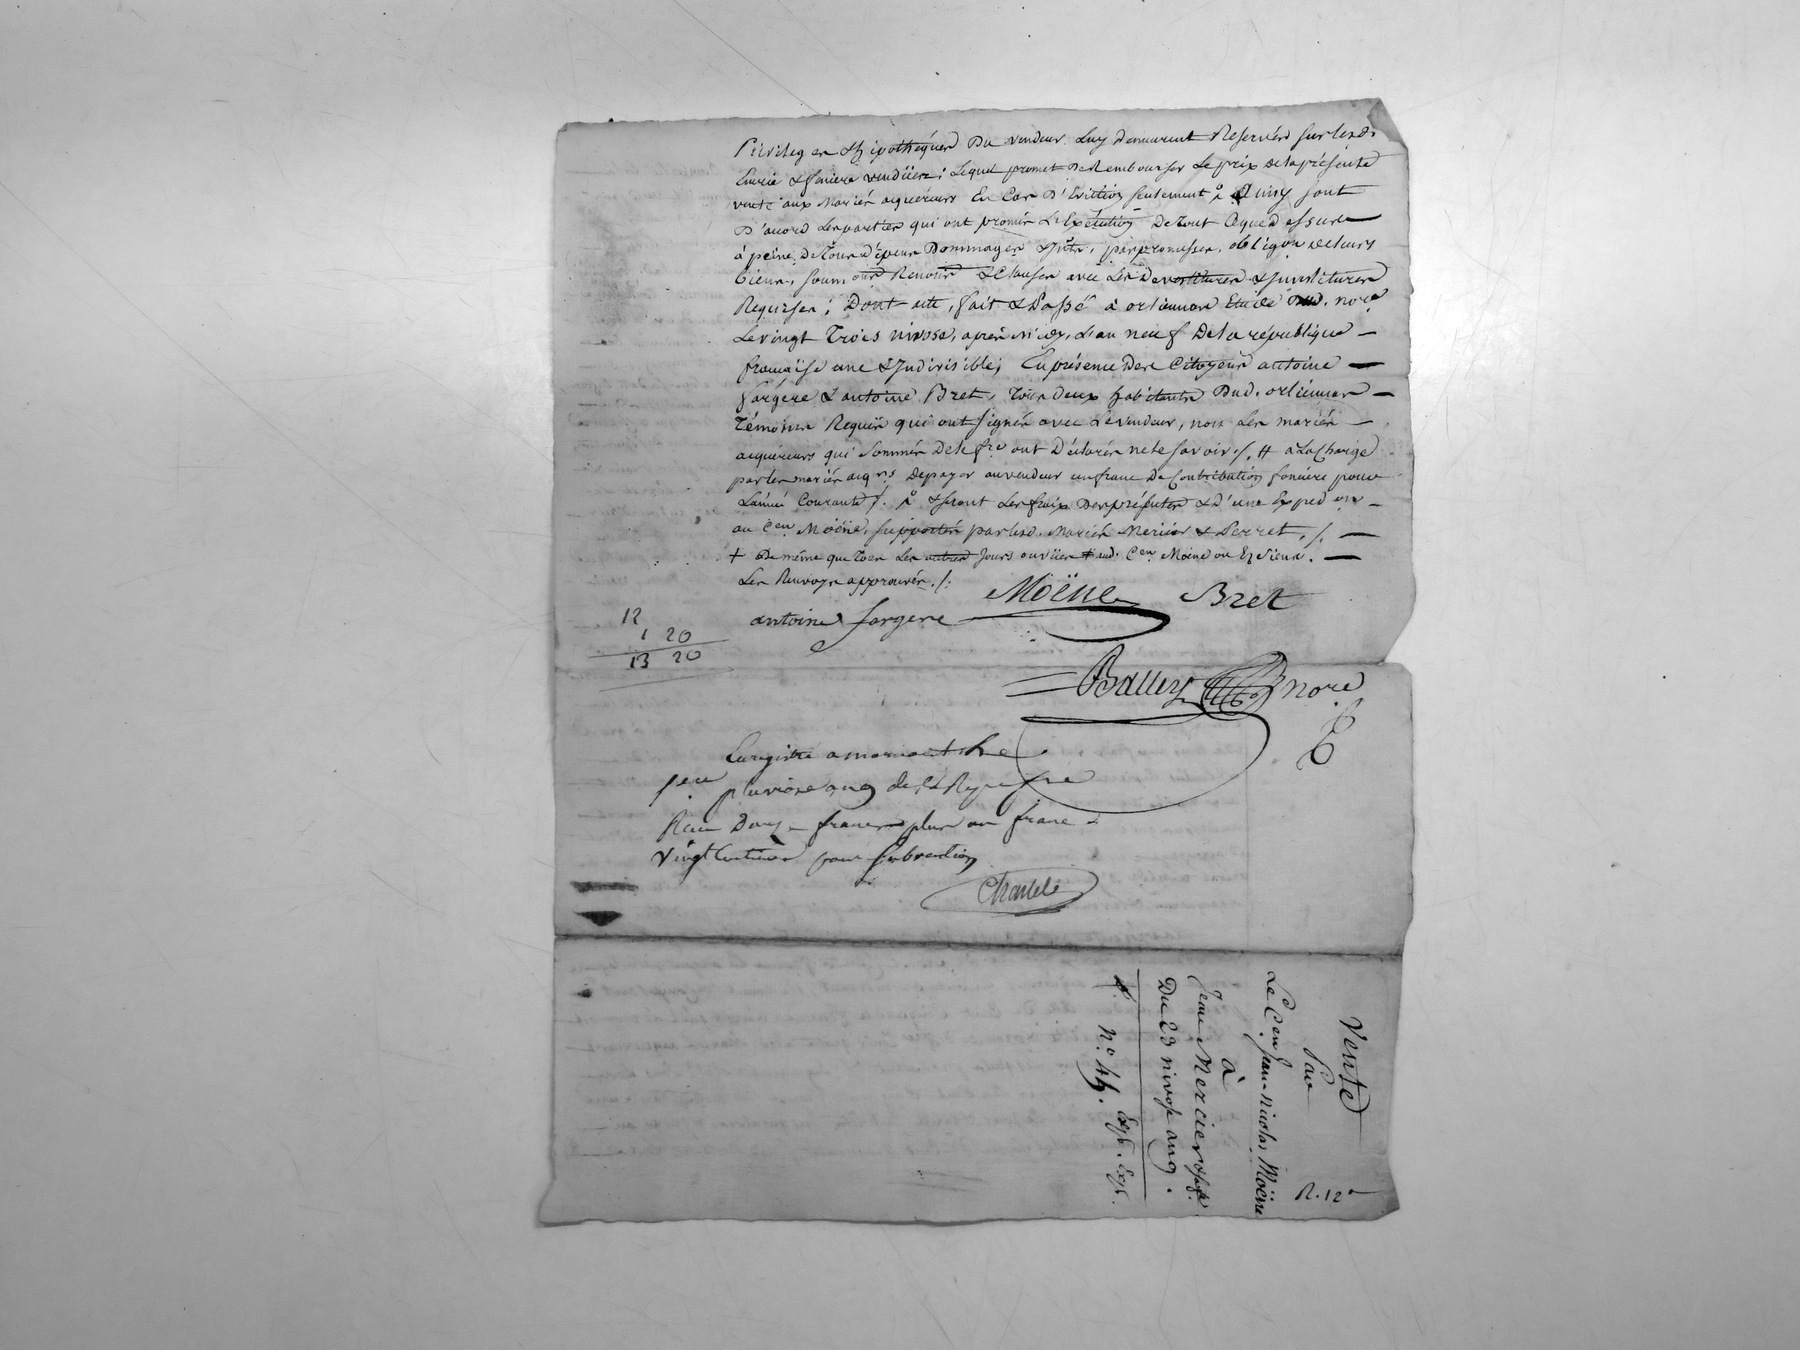 Privileges & hipothéques Du vendeur Luy demeurent Reservés sur lesds.
Curie & foniere vendües; Lequel promet De Rembourser Le prix de la présente
vente aux Mariés aquéreurs En Cas D'Eviction seulement; Ainsy sont
D'acord Les parties qui ont promis L'Exécution De Tout Ceque Dessus
à peine De Tous Dépens Dommages & Jnts, par promesse, oblig'on De leurs
biens, soum'ons Renon'on & Clauses avec Les Devestitures & Jnvestitures
Requises; Dont acte, fait & Passé à orliennas Etude Dud. nore
Le vingt Trois nivose, après midy, L'an neuf De la république
française une & Jndivisible; En présence Des Citoyens antoine
fargere & antoine Bret, Tous Deux habitants Dud. orliennas
Témoins Requis qui ont signés avec Le vendeur, non Les mariés
aquéreurs qui Sommés De le fre ont Déclarés ne le savoir ./. # à La Charge
par Les mariés aqrs De payer au vendeur un franc De Contribution fonciere pour
L'année Courante ./. & seront Les frais Des présentes & D'une Exped'on
au Cen Moëne, supportés par lesd. Mariés Mercier & Perret, ./.
+ De même que Tous Les autres Jours ouvriers # aud. Cen Moëne ou Es Siens.
Les Renvoys approuvés ./.
Moëne Bret
antoine fargere
12
1 20
13 20
Ballet nore
Enregistré a mornant le
1er pluviose an 9 de la Repu fse
Recu Douze francs plus un franc
vingt Centimes pour subvention
Chatelé
Vente
Par
Le Cen Jean Nicolas Moëne
à
Jean Mercier & sa fe.
Du 23 nivose an 9.
N.° 44. Exp. Exp.
R. 12